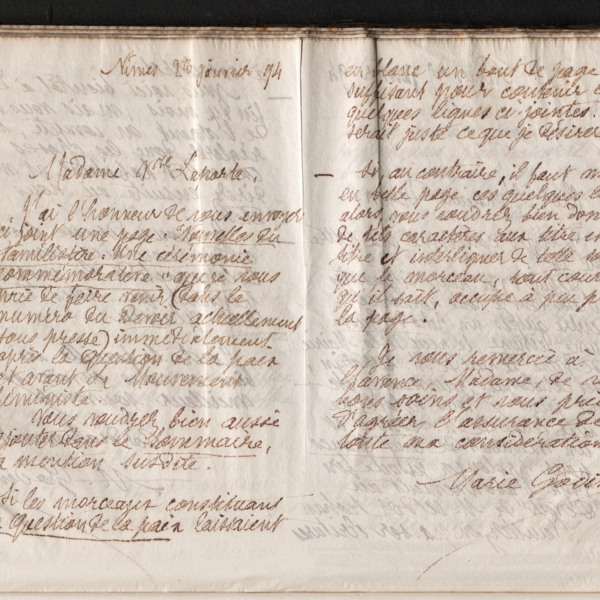 Nîmes 26 janvier 94
Madame Vve Laporte,
J'ai l'honneur de vous envoyer
ci joint une page: Nouvelles du
familistère. Une cérémonie
commémorative que je vous
prie de faire venir (dans le
numéro du Devoir actuellement
sous presse) immédiatement
après la Question de la paix
et avant le Mouvement
féministe.
Vous voudrez bien aussi
ajouter dans le Sommaire,
la mention susdite.
Si les morceaux constituant
la Question de la paix laissaient
en blanc un bout de page
suffisant pour contenir
quelques lignes ci-jointes.
serait juste ce que je désire
— Si, au contraire, il faut
en belle page ces quelques
alors, vous voudrez bien
de tels caractères aux titre
titre et interligner de telle
que le morceau, tout court
qu'il soit, occupe à peu
la page.
Je vous remercie à
l'avance, Madame, de
bons soins et vous prie
d'agréer l'assurance de
toute ma considération
Marie Godin